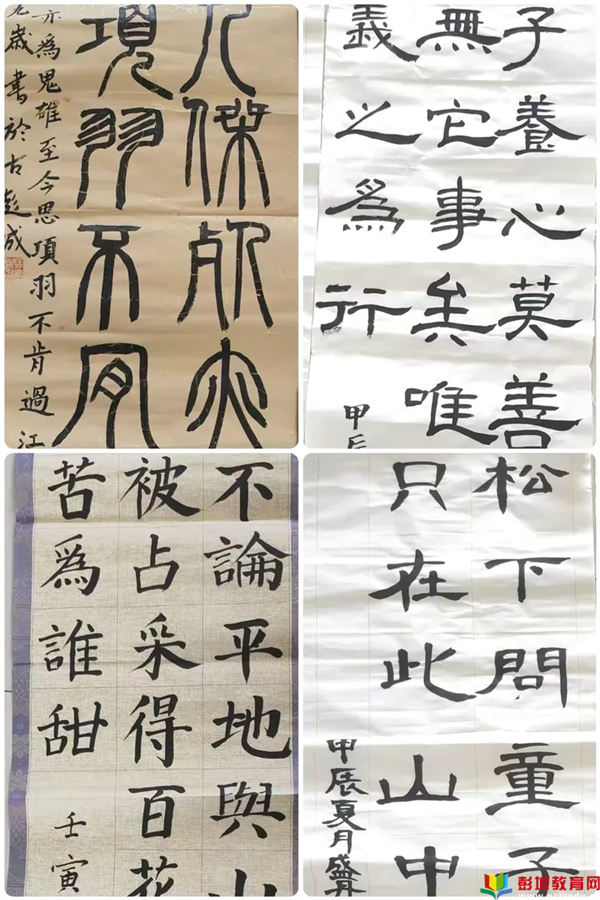 人傑死亦
項羽不肯
亦為鬼雄至今思項羽不肯過江
歲書於古彭城
子養心莫善
無它事矣唯
義之爲行
甲辰
不論平地與山
被占采得百花
苦爲誰甜
壬寅
松下問童子
只在此山中
甲辰夏月盛
彭城教育网